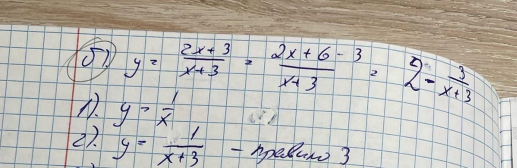 б). y = (2x+3)/(x+3) = (2x+6-3)/(x+3) = 2 - 3/(x+3)
1). y = 1/x
2). y = 1/(x+3) - правило 3